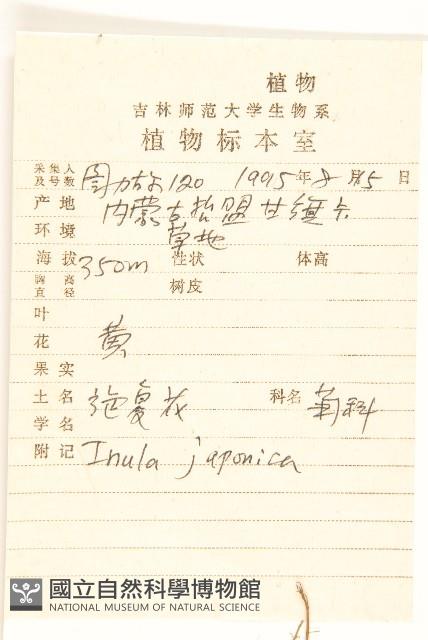 植物
吉林师范大学生物系
植物标本室
采集人及号数 图力古尔120 1995年8月5日
产地 内蒙古
环境 草地
海拔 350m 性状 体高
胸高直径 树皮
叶
花 黄
果实
土名 旋复花 科名 菊科
学名
附记 Inula japonica
國立自然科學博物館
NATIONAL MUSEUM OF NATURAL SCIENCE